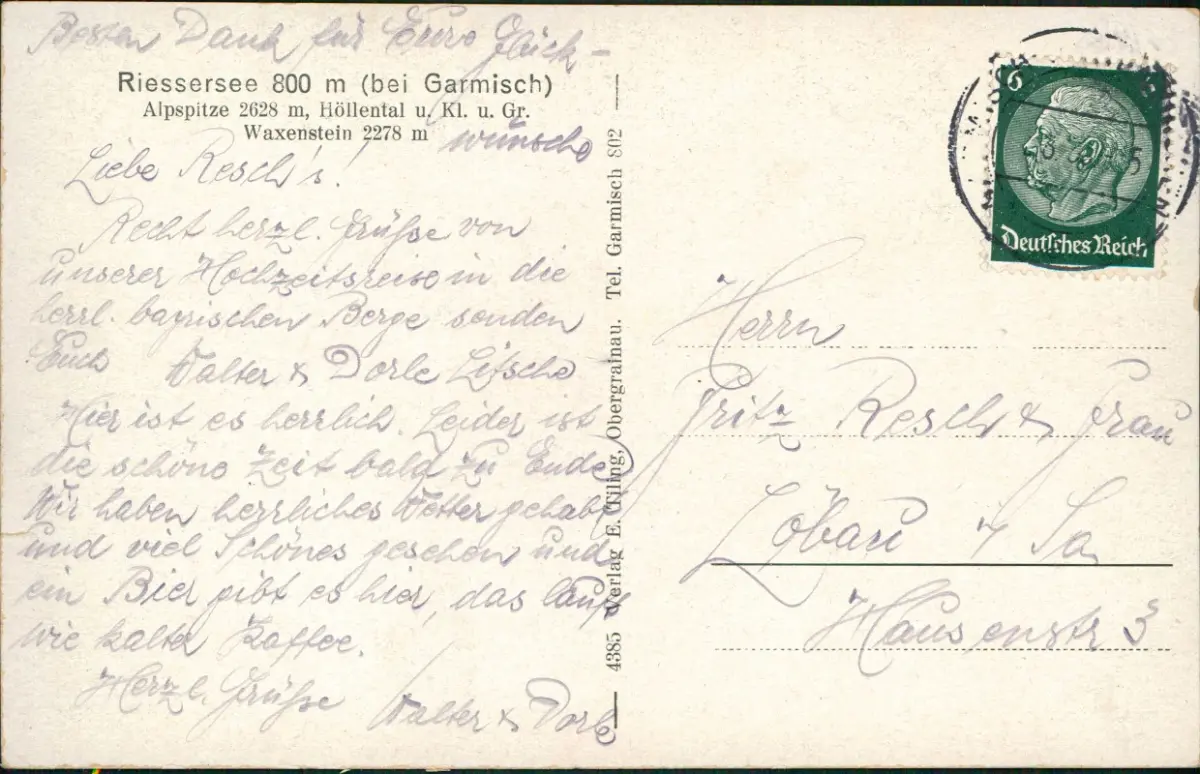 Besten Dank für Eure Glück-
Riessersee 800 m (bei Garmisch)
Alpspitze 2628 m, Höllental u. Kl. u. Gr.
Waxenstein 2278 m
wünsche
Liebe Resch's!
Recht herzl. Grüße von
unserer Hochzeitsreise in die
herrl. bayrischen Berge senden
Euch Walter & Dorle
Hier ist es herrlich. Leider ist
die schöne Zeit bald zu Ende
Wir haben herrliches Wetter gehabt
und viel Schönes gesehen und
ein Bier gibt es hier, das läuft
wie kalter Kaffee.
Herzl. Grüße Walter & Dorle
4385 Verlag E. Tiling, Obergrainau. Tel. Garmisch 802
6
Deutsches Reich
Herrn
Fritz Resch & Frau
Löbau i/Sa
Hausenstr 3